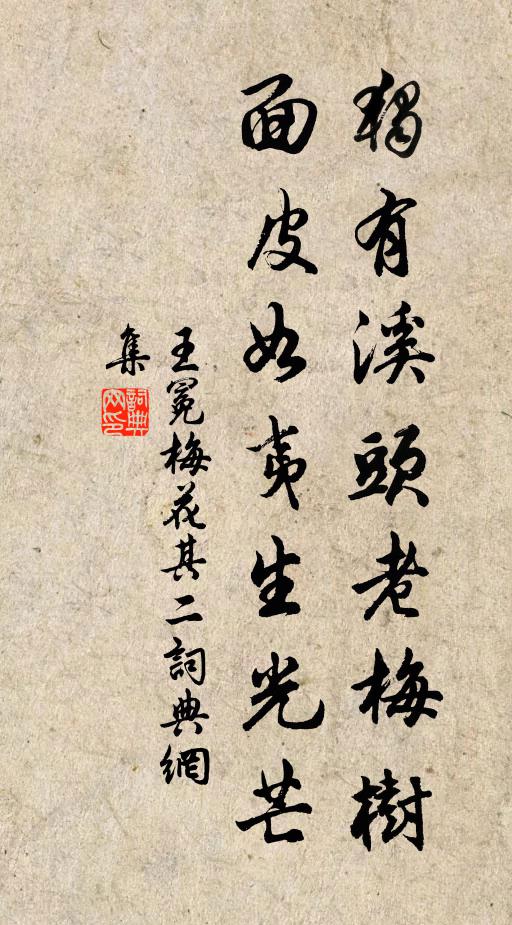 獨有溪頭老梅樹
面皮如夷生光芒
王冕梅花其二詞典網
集
詞典網印